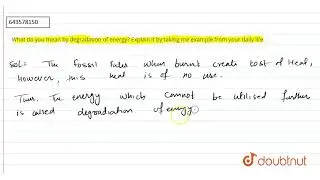 643578150
What do you mean by degradation of energy? Explain it by taking one example from your daily life.
Solⁿ The fossil fules when burnt create lost of Heat,
However, this heat is of no use.
Thus, The energy which cannot be utilised further
is called degradiation of energy.
doubtnut